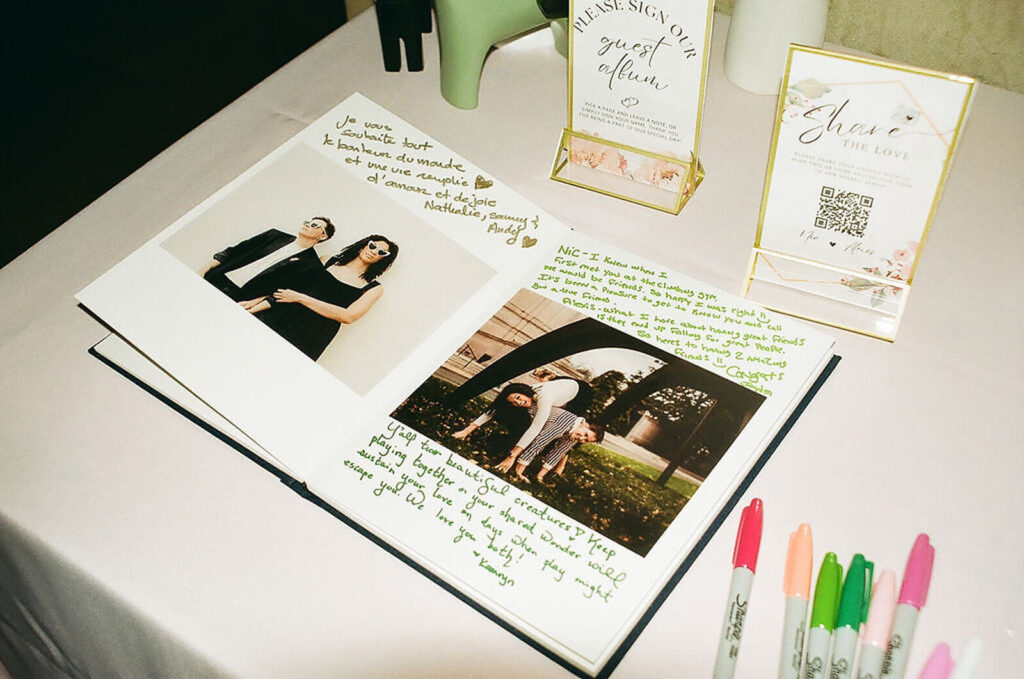 Je vous
souhaite tout
le bonheur du monde
et une vie remplie
d'amour et de joie
Nathalie, Sammy &
Andy
PLEASE SIGN OUR
guest
album
PICK A PAGE AND LEAVE A NOTE, OR
SIMPLY SIGN YOUR NAME. THANK YOU
FOR BEING A PART OF OUR SPECIAL DAY!
Share
THE LOVE
Nic - I knew when I
first met you at the climbing gym
we would be friends. So happy I was right!!
It's been a pleasure to get to know you and call
you a true friend.
Alexis - What I love about having great friends
is they end up falling for great people.
So heres to having 2 amazing
friends!!
Congrats
Y'all two beautiful creatures! Keep
playing together in your shared wonder will
sustain your love on days when play might
escape you. We love you both!
Sharpie
Sharpie
Sharpie
Sharpie